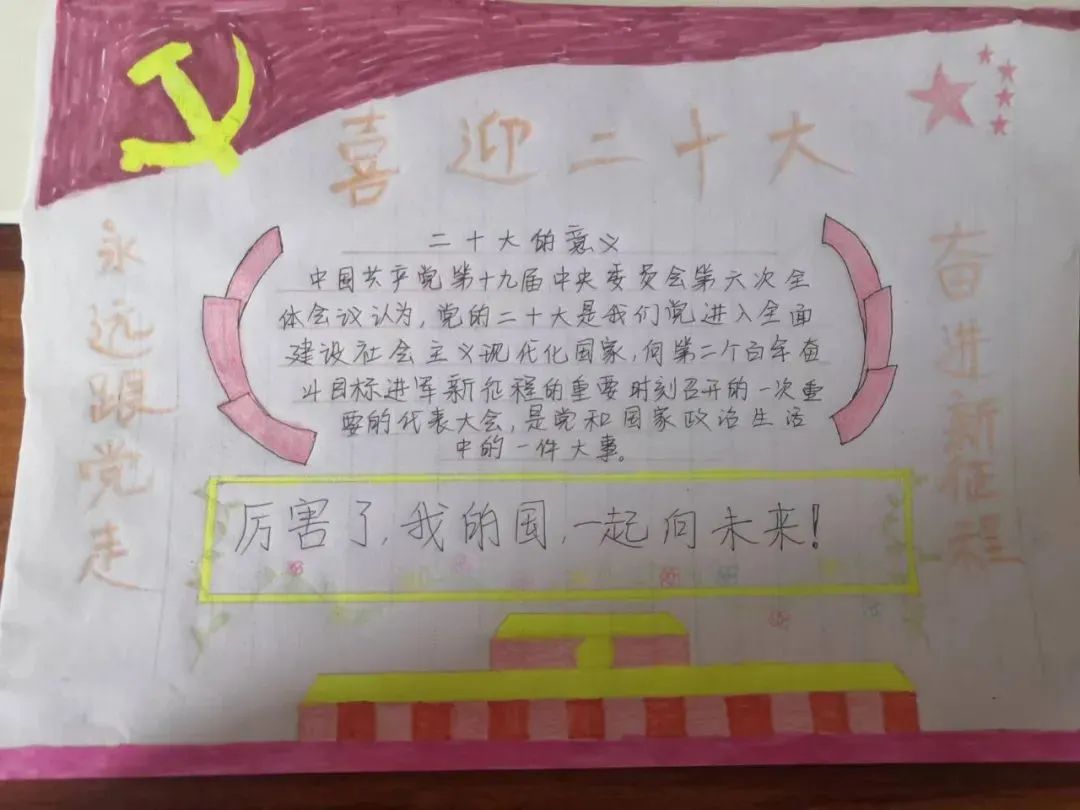 喜迎二十大
永远跟党走
二十大的意义
中国共产党第十九届中央委员会第六次全
体会议认为,党的二十大是我们党进入全面
建设社会主义现代化国家,向第二个百年奋
斗目标进军新征程的重要时刻召开的一次重
要的代表大会,是党和国家政治生活
中的一件大事。
奋进新征程
厉害了,我的国,一起向未来!